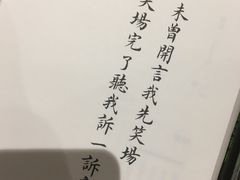 未曾開言我先笑場
笑場完了聽我訴一訴